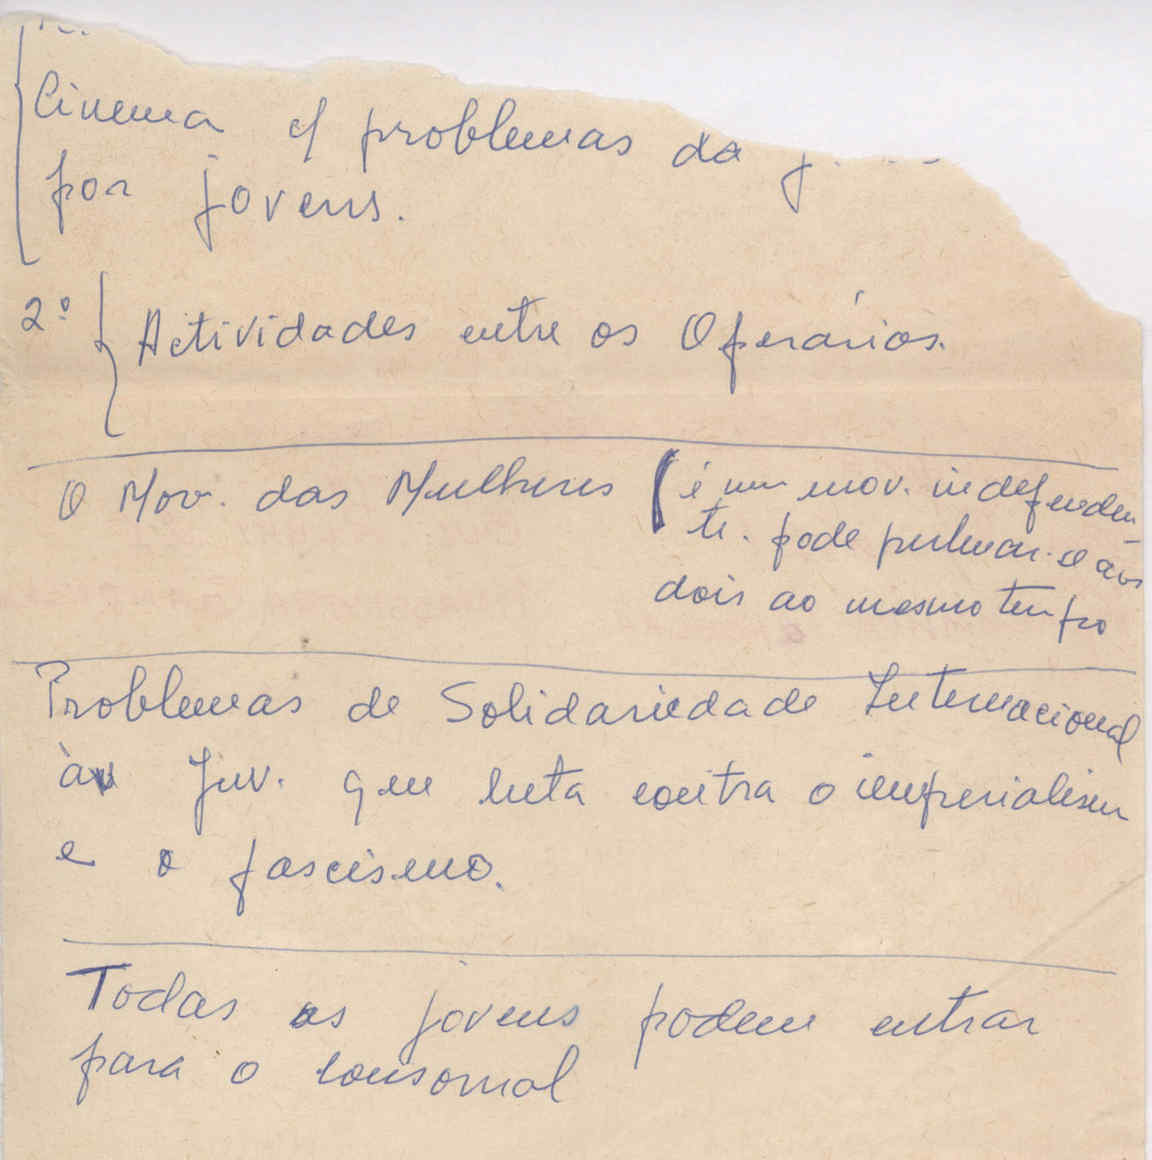 Cinema c/ problemas da
por jovens.
2º Actividades entre os Operários.
O Mov. das Mulheres
é um mov. independen
te. pode pertencer-se aos
dois ao mesmo tempo
Problemas de Solidariedade Internacional
à Juv. que luta contra o imperialism
e o fascismo.
Todas as jovens podem entrar
para o consomol